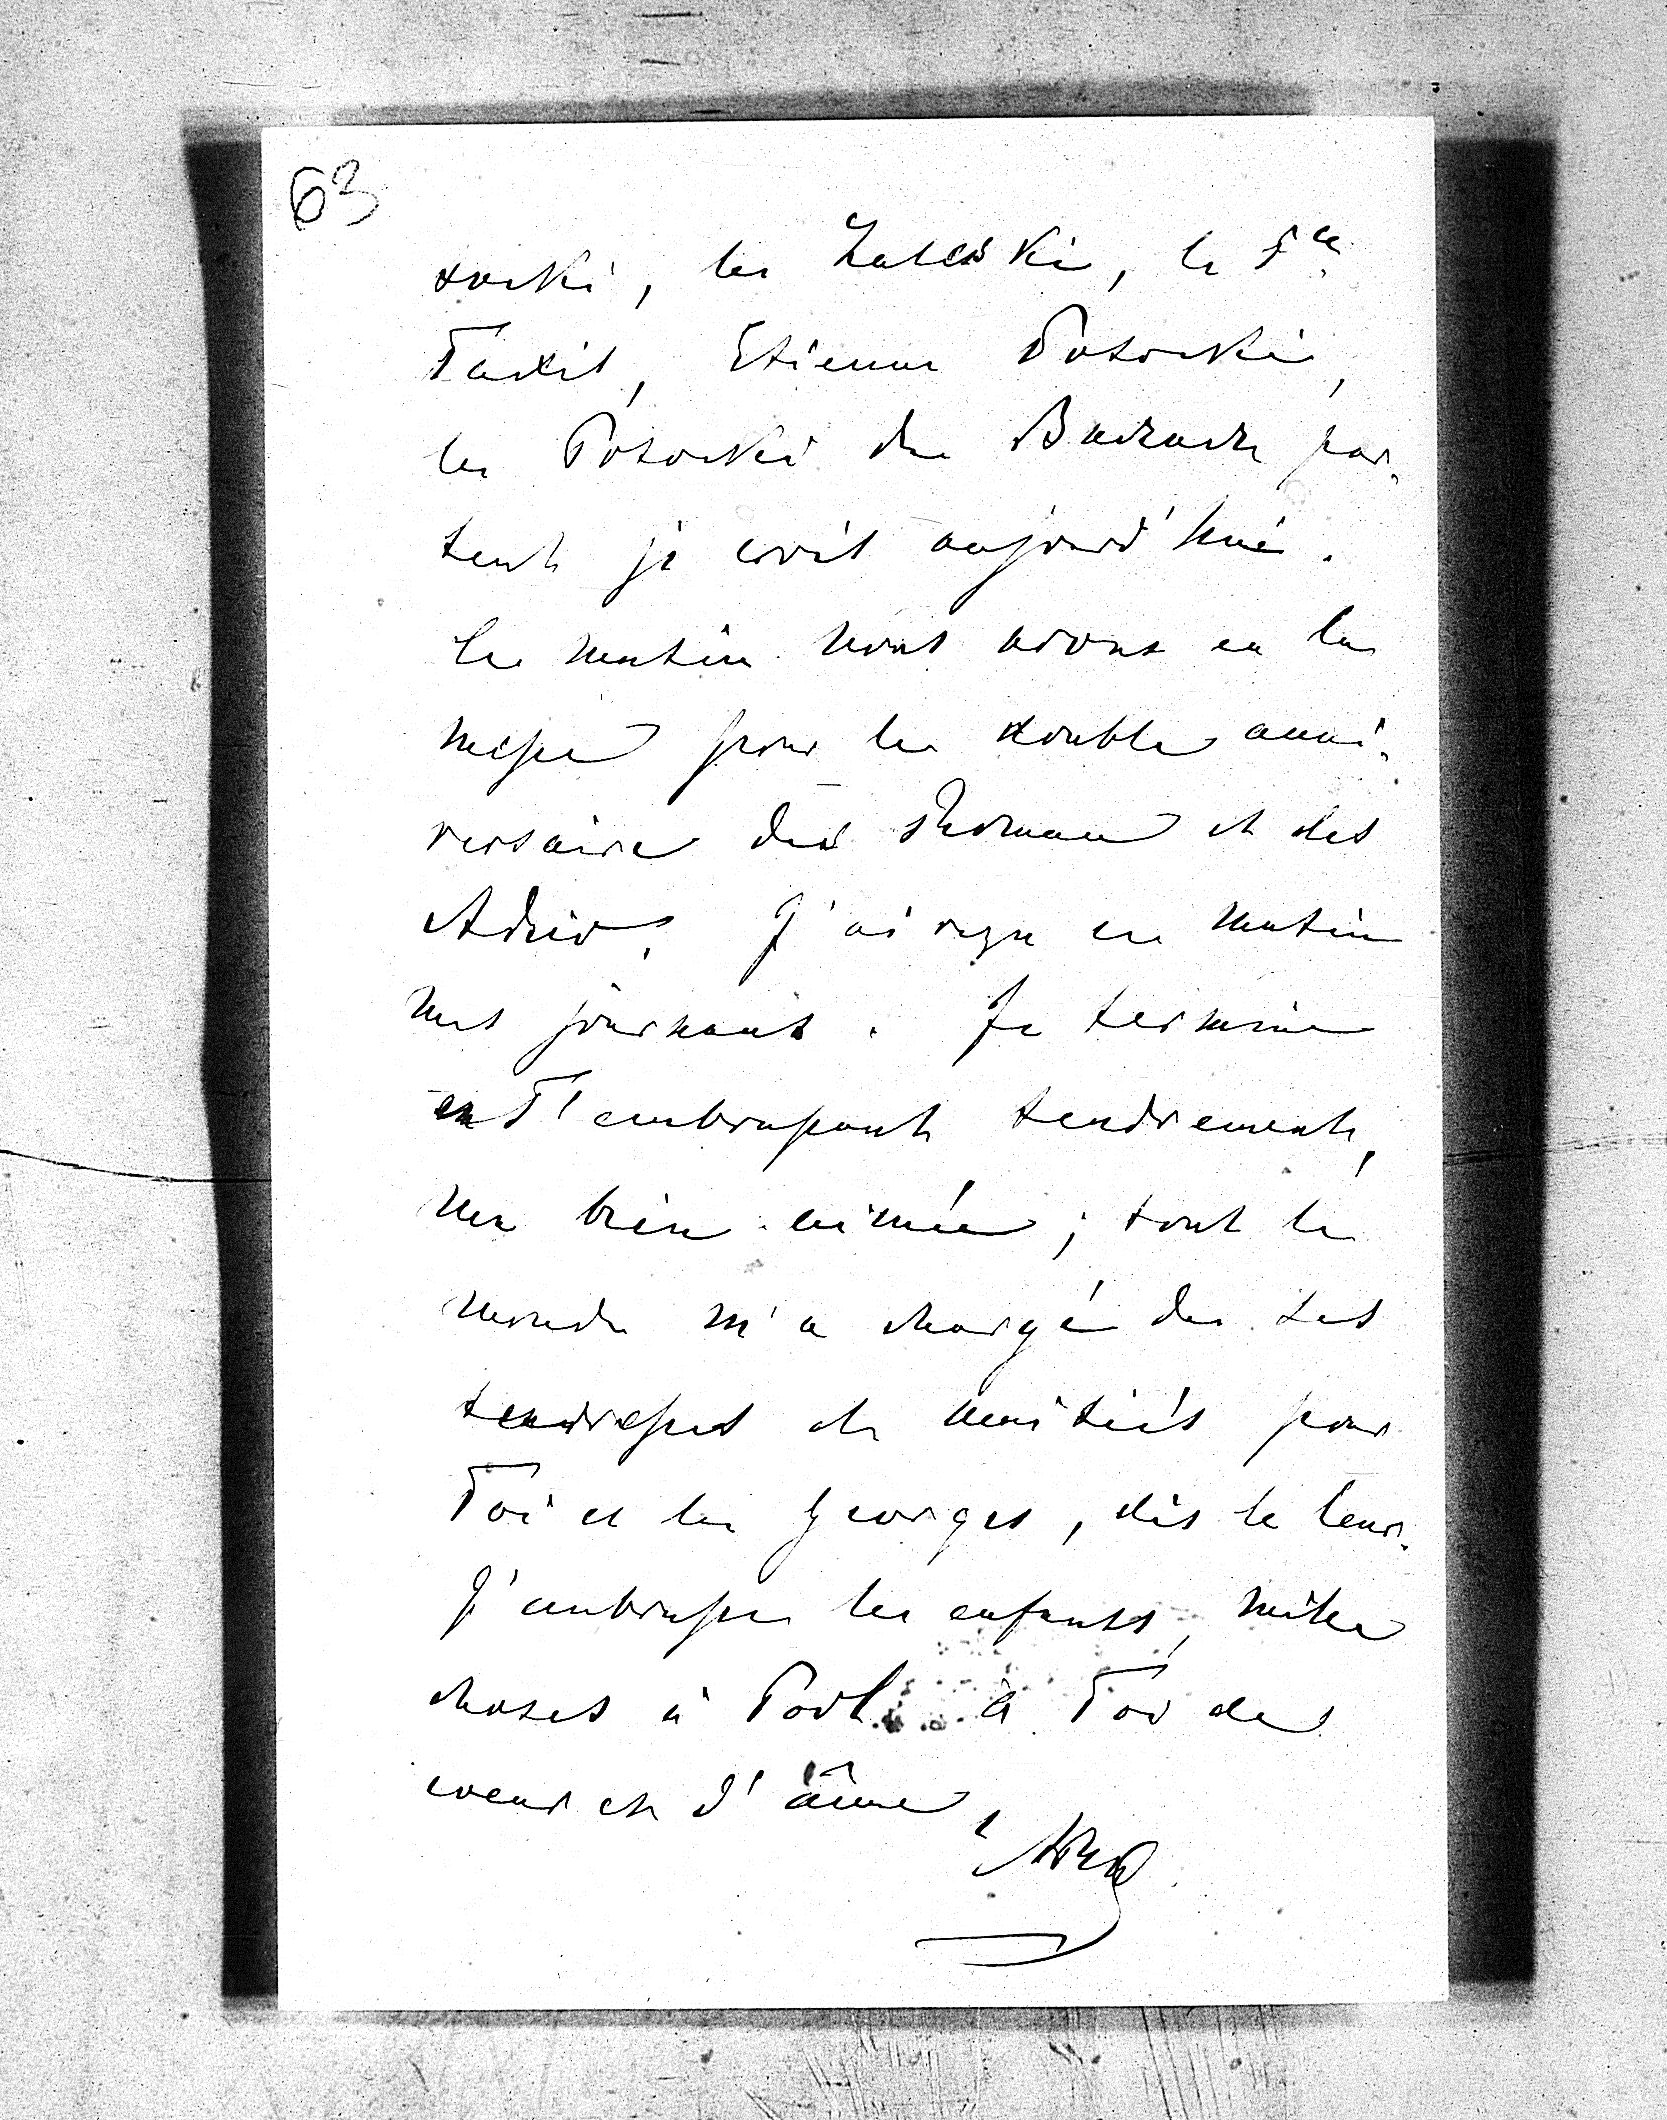 63
tocki, les Zaleski, le Pce
Taxis, Etienne Potocki,
les Potocki de Buczacz par-
tent je crois aujourd'hui.
Ce matin nous avons eu la
messe pour le double anni-
versaire des Roman et des
Adzio. J'ai reçu ce matin
mes journaux. Je termine
en T'embrassant tendrement,
ma bien-aimée; tout le
monde m'a chargé de Ses
tendresses et amitiés pour
Toi et les Georges, dis le leur.
J'embrasse les enfants, mille
choses à Podl. à Toi de
coeur et d'âme,